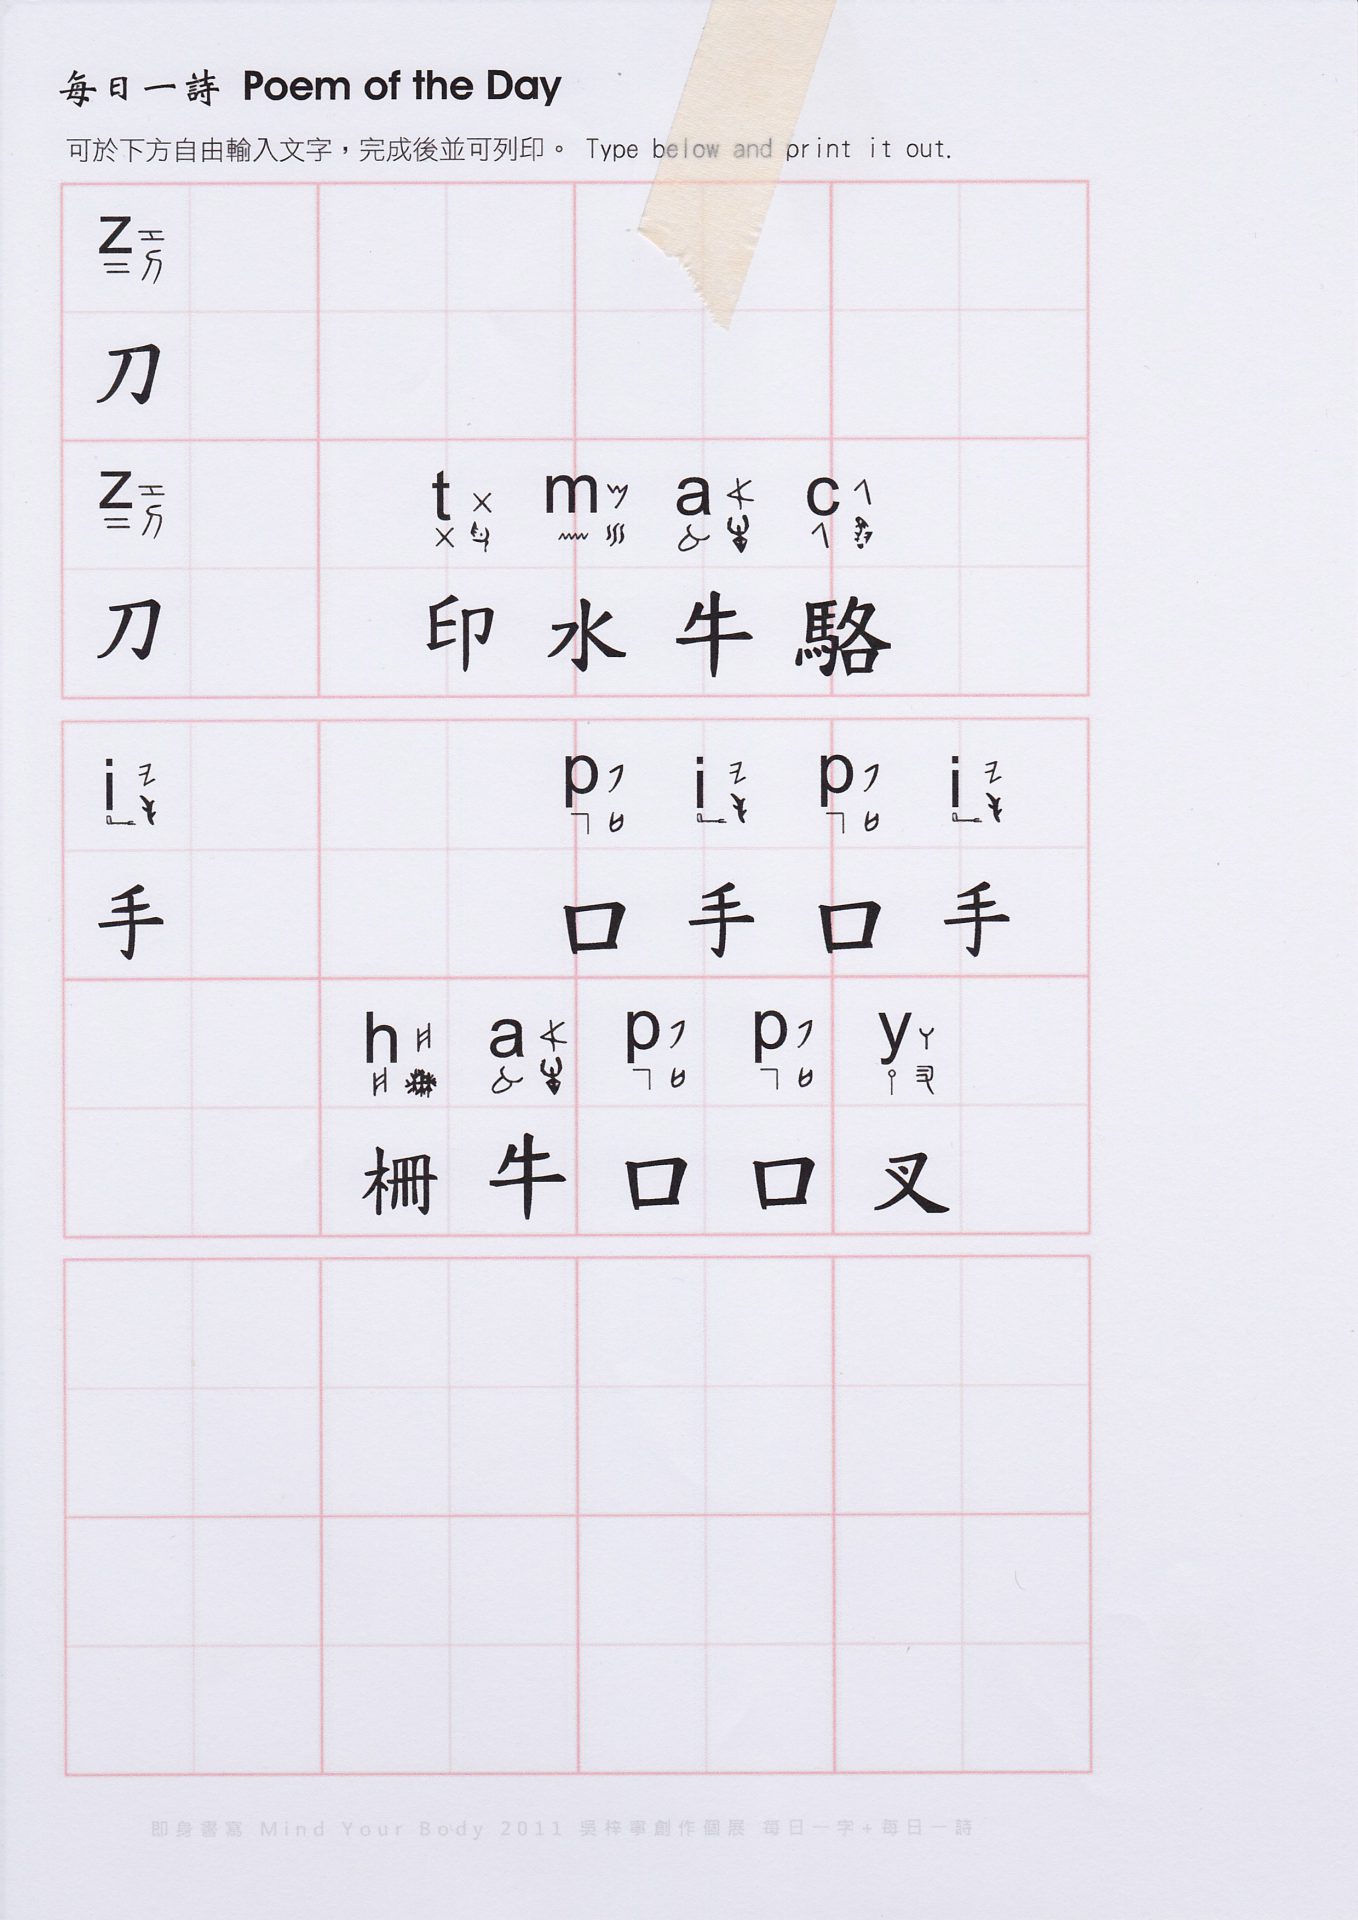 每日一詩 Poem of the Day
可於下方自由輸入文字，完成後並可列印。 Type below and print it out.
z
刀
z t m a c
刀 印 水 牛 駱
i p i p i
手 口 手 口 手
h a p p y
柵 牛 口 口 叉
即身書寫 Mind Your Body 2011 吳梓寧創作個展 每日一字+每日一詩